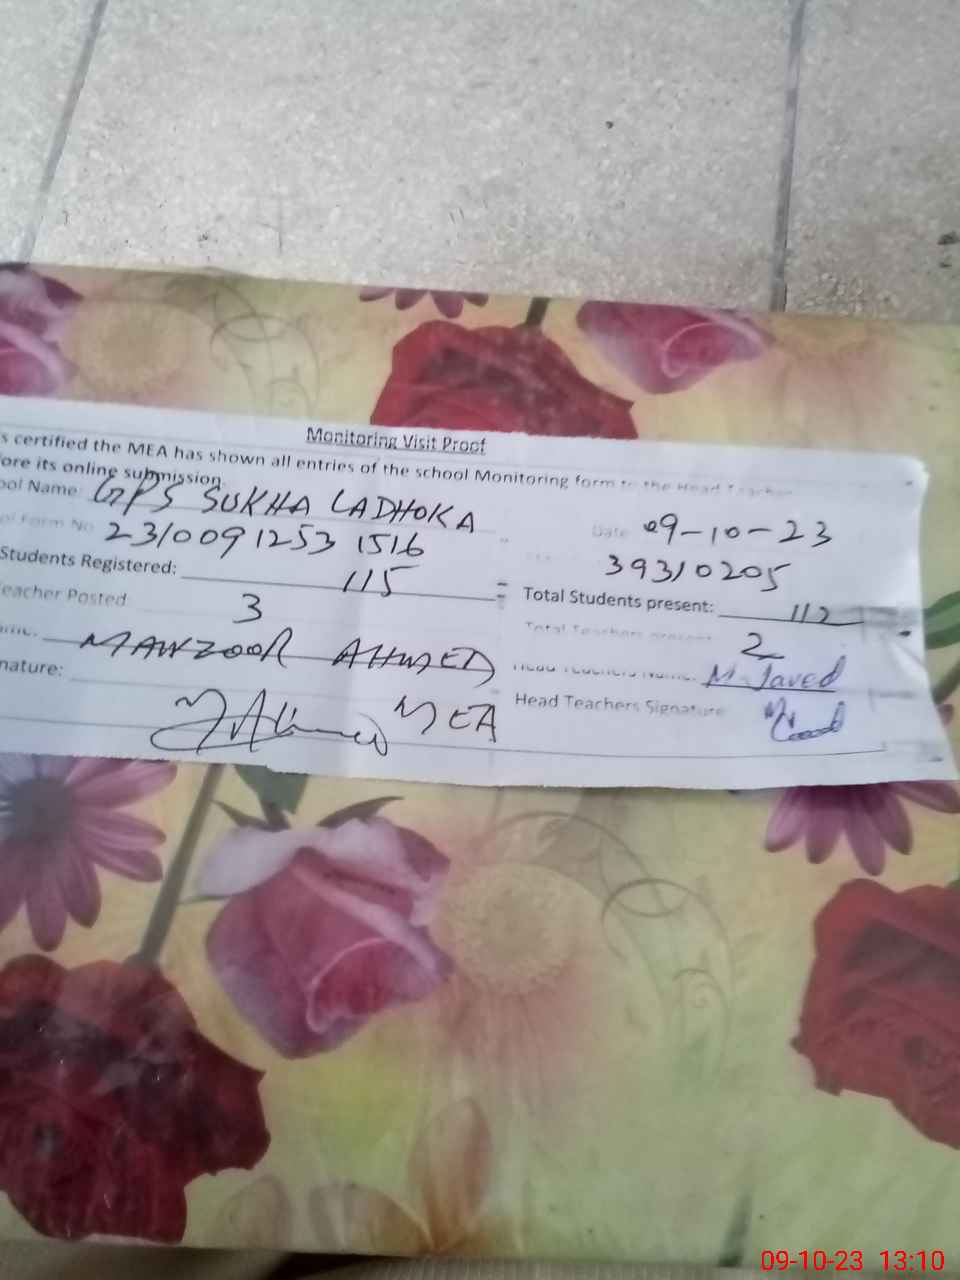 Monitoring Visit Proof
s certified the MEA has shown all entries of the school Monitoring form to the Head Teacher
ore its online submission.
ool Name: GPS SUKHA LADHOKA
ol Form No 23100912531516 Date 09-10-23
39310205
Students Registered: 115 Total Students present: 112
eacher Posted 3 Total Teachers present 2
ame: MANZOOR AHMED Head Teachers Name: M. Javed
nature: MEA Head Teachers Signature
09-10-23 13:10